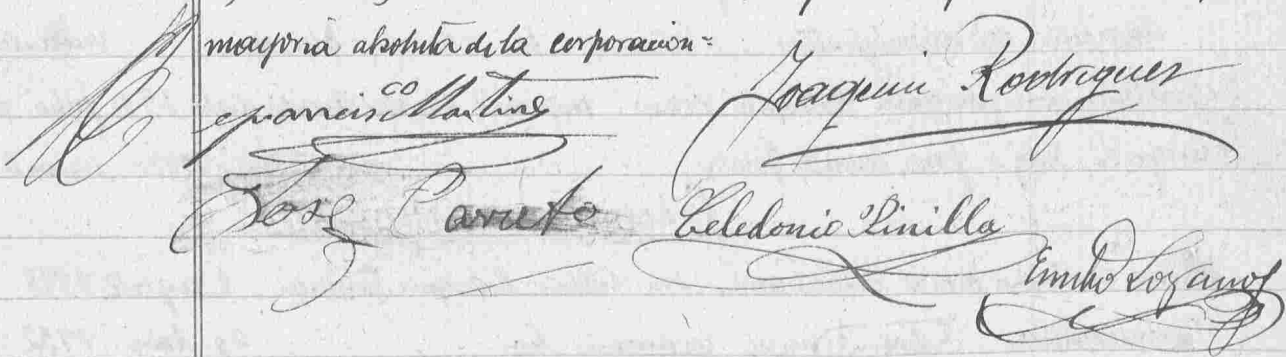 mayoria absoluta de la corporacion=
Francisco Martinez
Joaquin Rodriguez
José Carreto
Celedonio Pinilla
Emilio Lozano